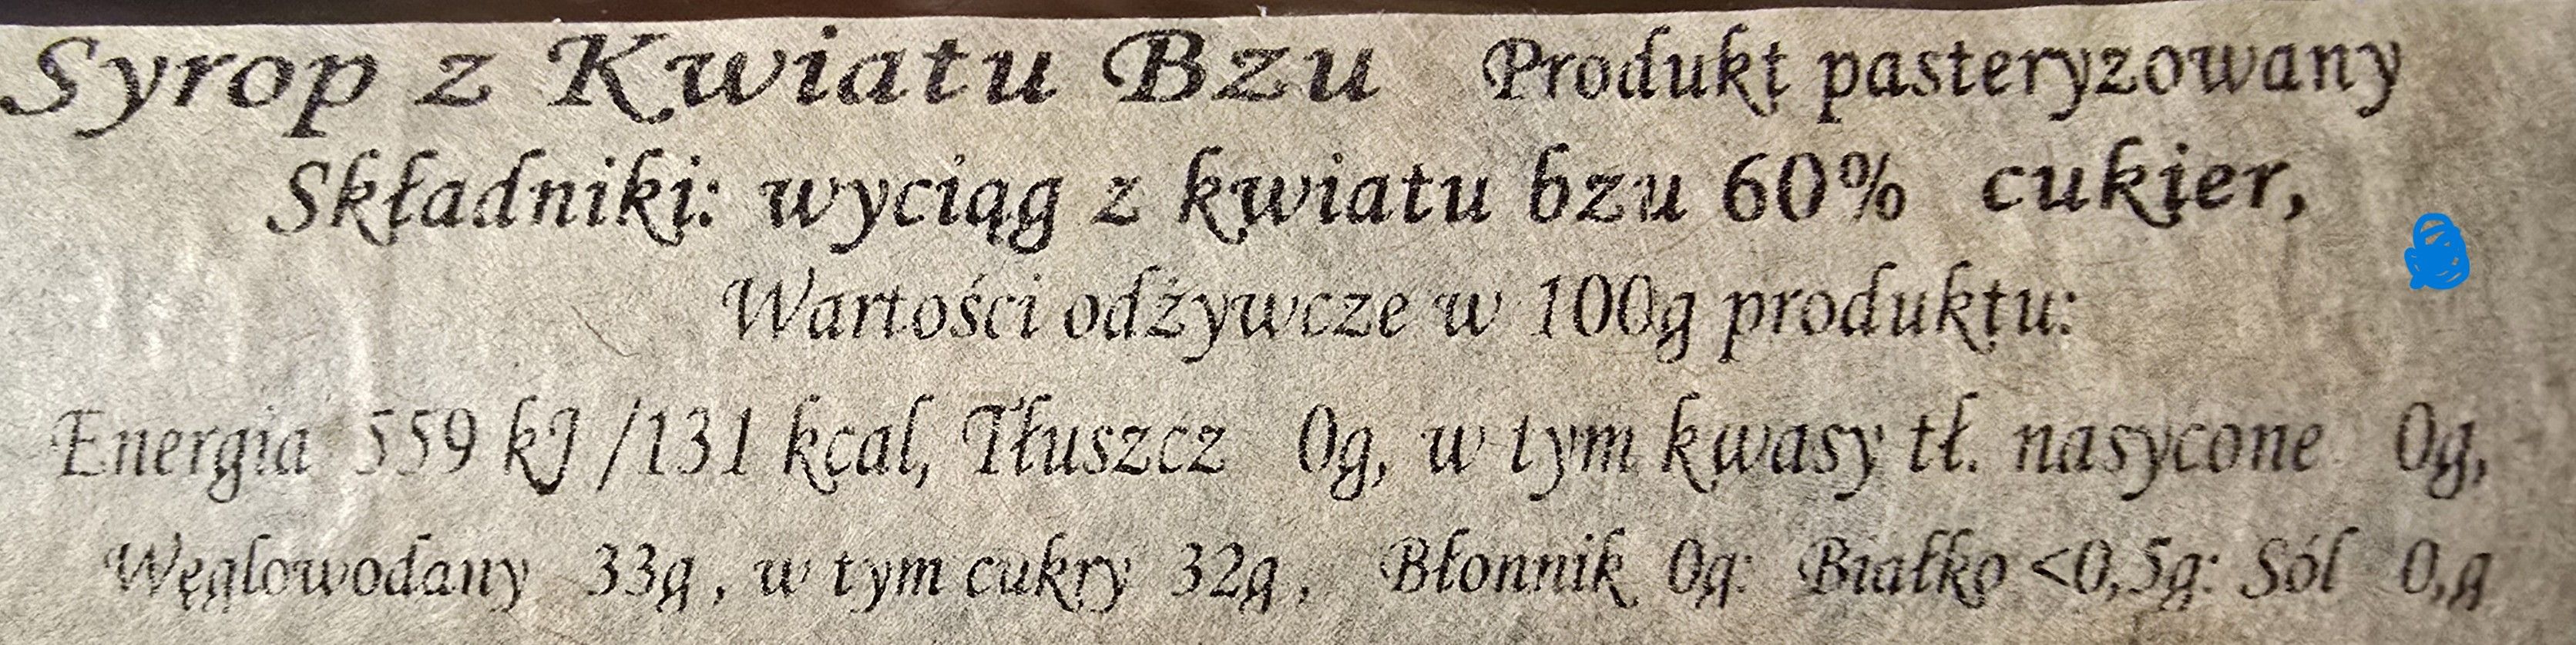 Syrop z Kwiatu Bzu Produkt pasteryzowany
Składniki: wyciąg z kwiatu bzu 60% cukier,
Wartości odżywcze w 100g produktu:
Energia 559 kJ /131 kcal, Tłuszcz 0g, w tym kwasy tł. nasycone 0g,
Węglowodany 33g , w tym cukry 32g , Błonnik 0g: Białko <0,5g: Sól 0,g